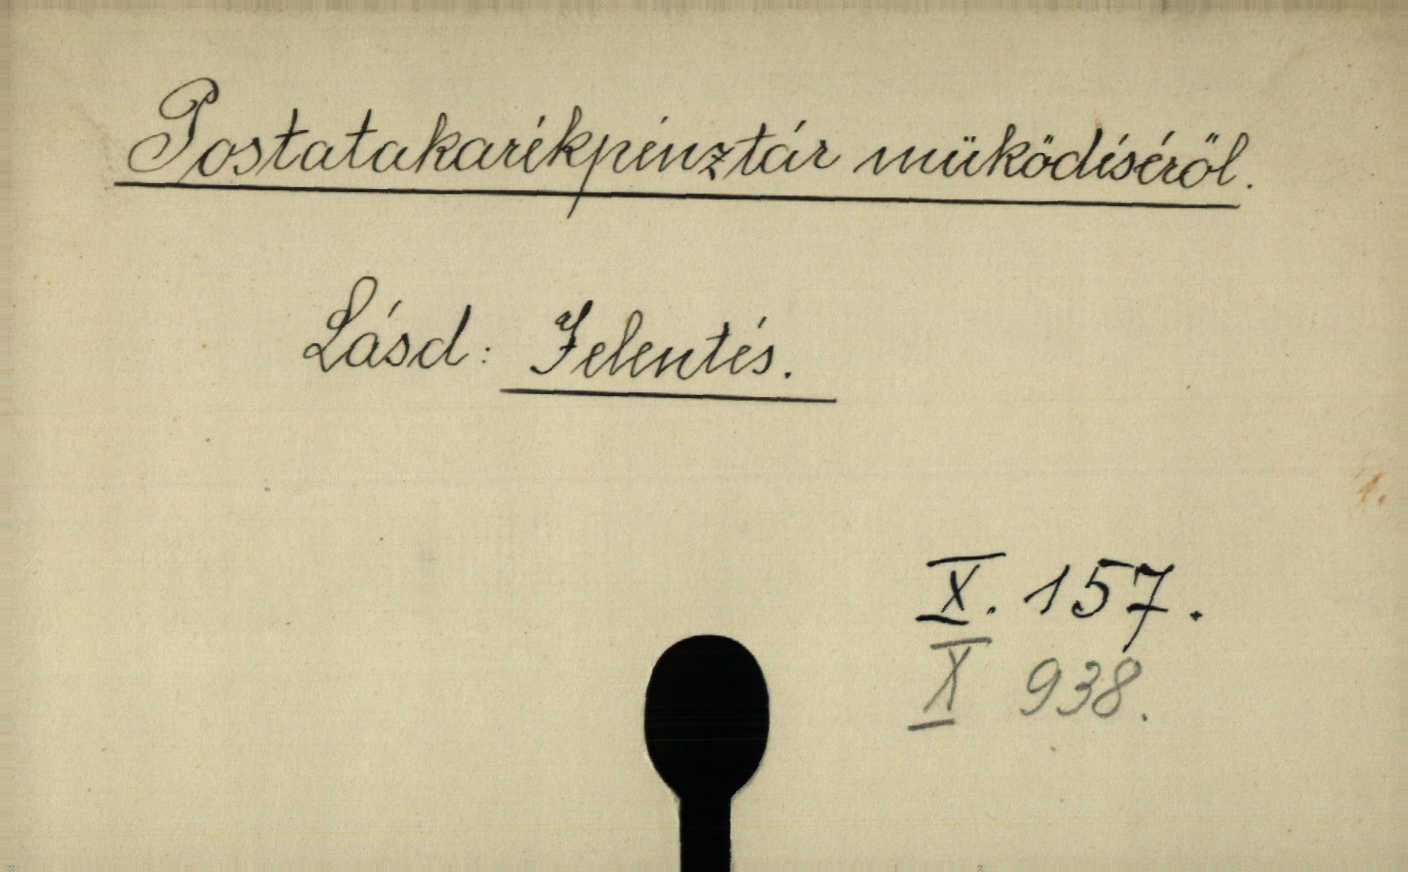 Postatakarékpénztár müködéséről.
Lásd: Jelentés.
X. 157.
X 938.